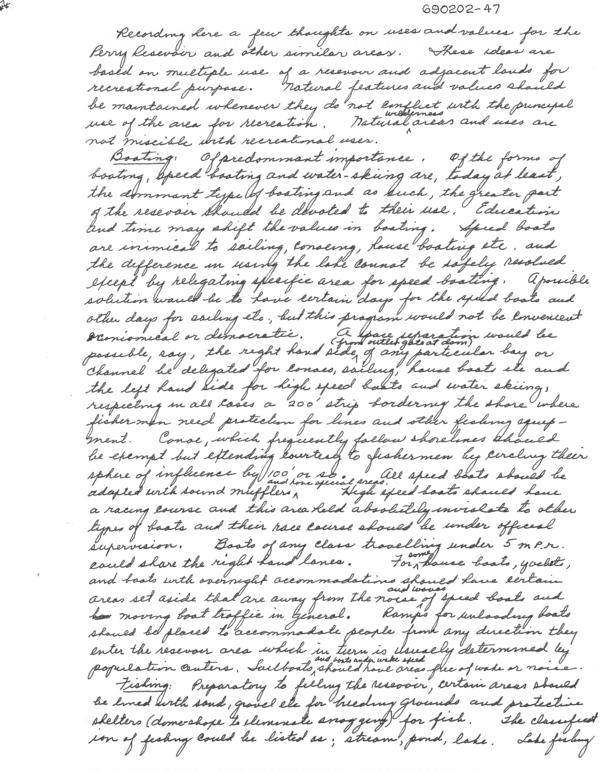 690202-47
Recording here a few thoughts on uses and values for the
Perry Resevoir and other similar areas. These ideas are
based on multiple use of a resevoir and adjacent lands for
recreational purpose. Natural features and values should
be maintained whenever they do not conflict with the principal
use of the area for recreation. Natural wilderness areas and uses are
not miscible with recreational uses.
Boating: Of predominant importance. Of the forms of
boating, speed boating and water-skiing are, today at least,
the dominant type of boating and as such, the greater part
of the resevoir should be devoted to their use. Education
and time may shift the values in boating. Speed boats
are inimical to sailing, canoeing, house boating etc. and
the difference in using the lake cannot be safely resolved
except by relegating specific area for speed boating. A possible
solution would be to have certain days for the speed boats and
other days for sailing etc., but this program would not be convenient
economical or democratic. A space separation would be
possible, say, the right hand side (from outlet gate at dam) of any particular bay or
channel be delegated for canoes, sailing, house boats etc and
the left hand side for high speed boats and water skiing,
respecting in all cases a 200' strip bordering the shore where
fishermen need protection for lines and other fishing equip-
ment. Canoe, which frequently follow shorelines should
be exempt but extending courtesy to fishermen by circling their
sphere of influence by 100' or so. All speed boats should be
adapted with sound mufflers and have special areas. High speed boats should have
a racing course and this area held absolutely inviolate to other
types of boats and their race course should be under official
supervision. Boats of any class travelling under 5 m.p.r.
could share the right hand lanes. For some house boats, yachts,
and boats with overnight accommodations should have certain
areas set aside that are away from the noise and waves of speed boats and
moving boat traffic in general. Ramps for unloading boats
should be placed to accommodate people from any direction they
enter the resevoir area which in turn is usually determined by
population centers. Sailboats and boats under wake speed should have areas free of wake or noise.
Fishing: Preparatory to filling the resevoir, certain areas should
be lined with sand, gravel etc for breeding grounds and protective
shelters (dome shape to eleminate snagging) for fish. The classificat
ion of fishing could be listed as; stream, pond, lake. Lake fishing